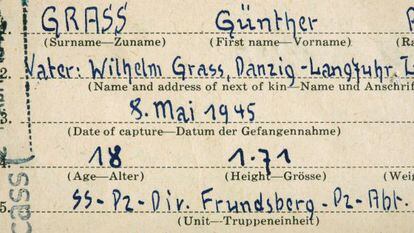 GRASS Günther
(Surname—Zuname) (First name—Vorname)
2. Vater: Wilhelm Grass, Danzig-Langfuhr,
(Name and address of next of kin—Name und Anschrif
8. Mai 1945
(Date of capture—Datum der Gefangennahme)
4. 18 1.71
(Age—Alter) (Height—Grösse) (Wei
5. SS-Pz-Div. Frundsberg-Pz-Abt.
(Unit—Truppeneinheit)